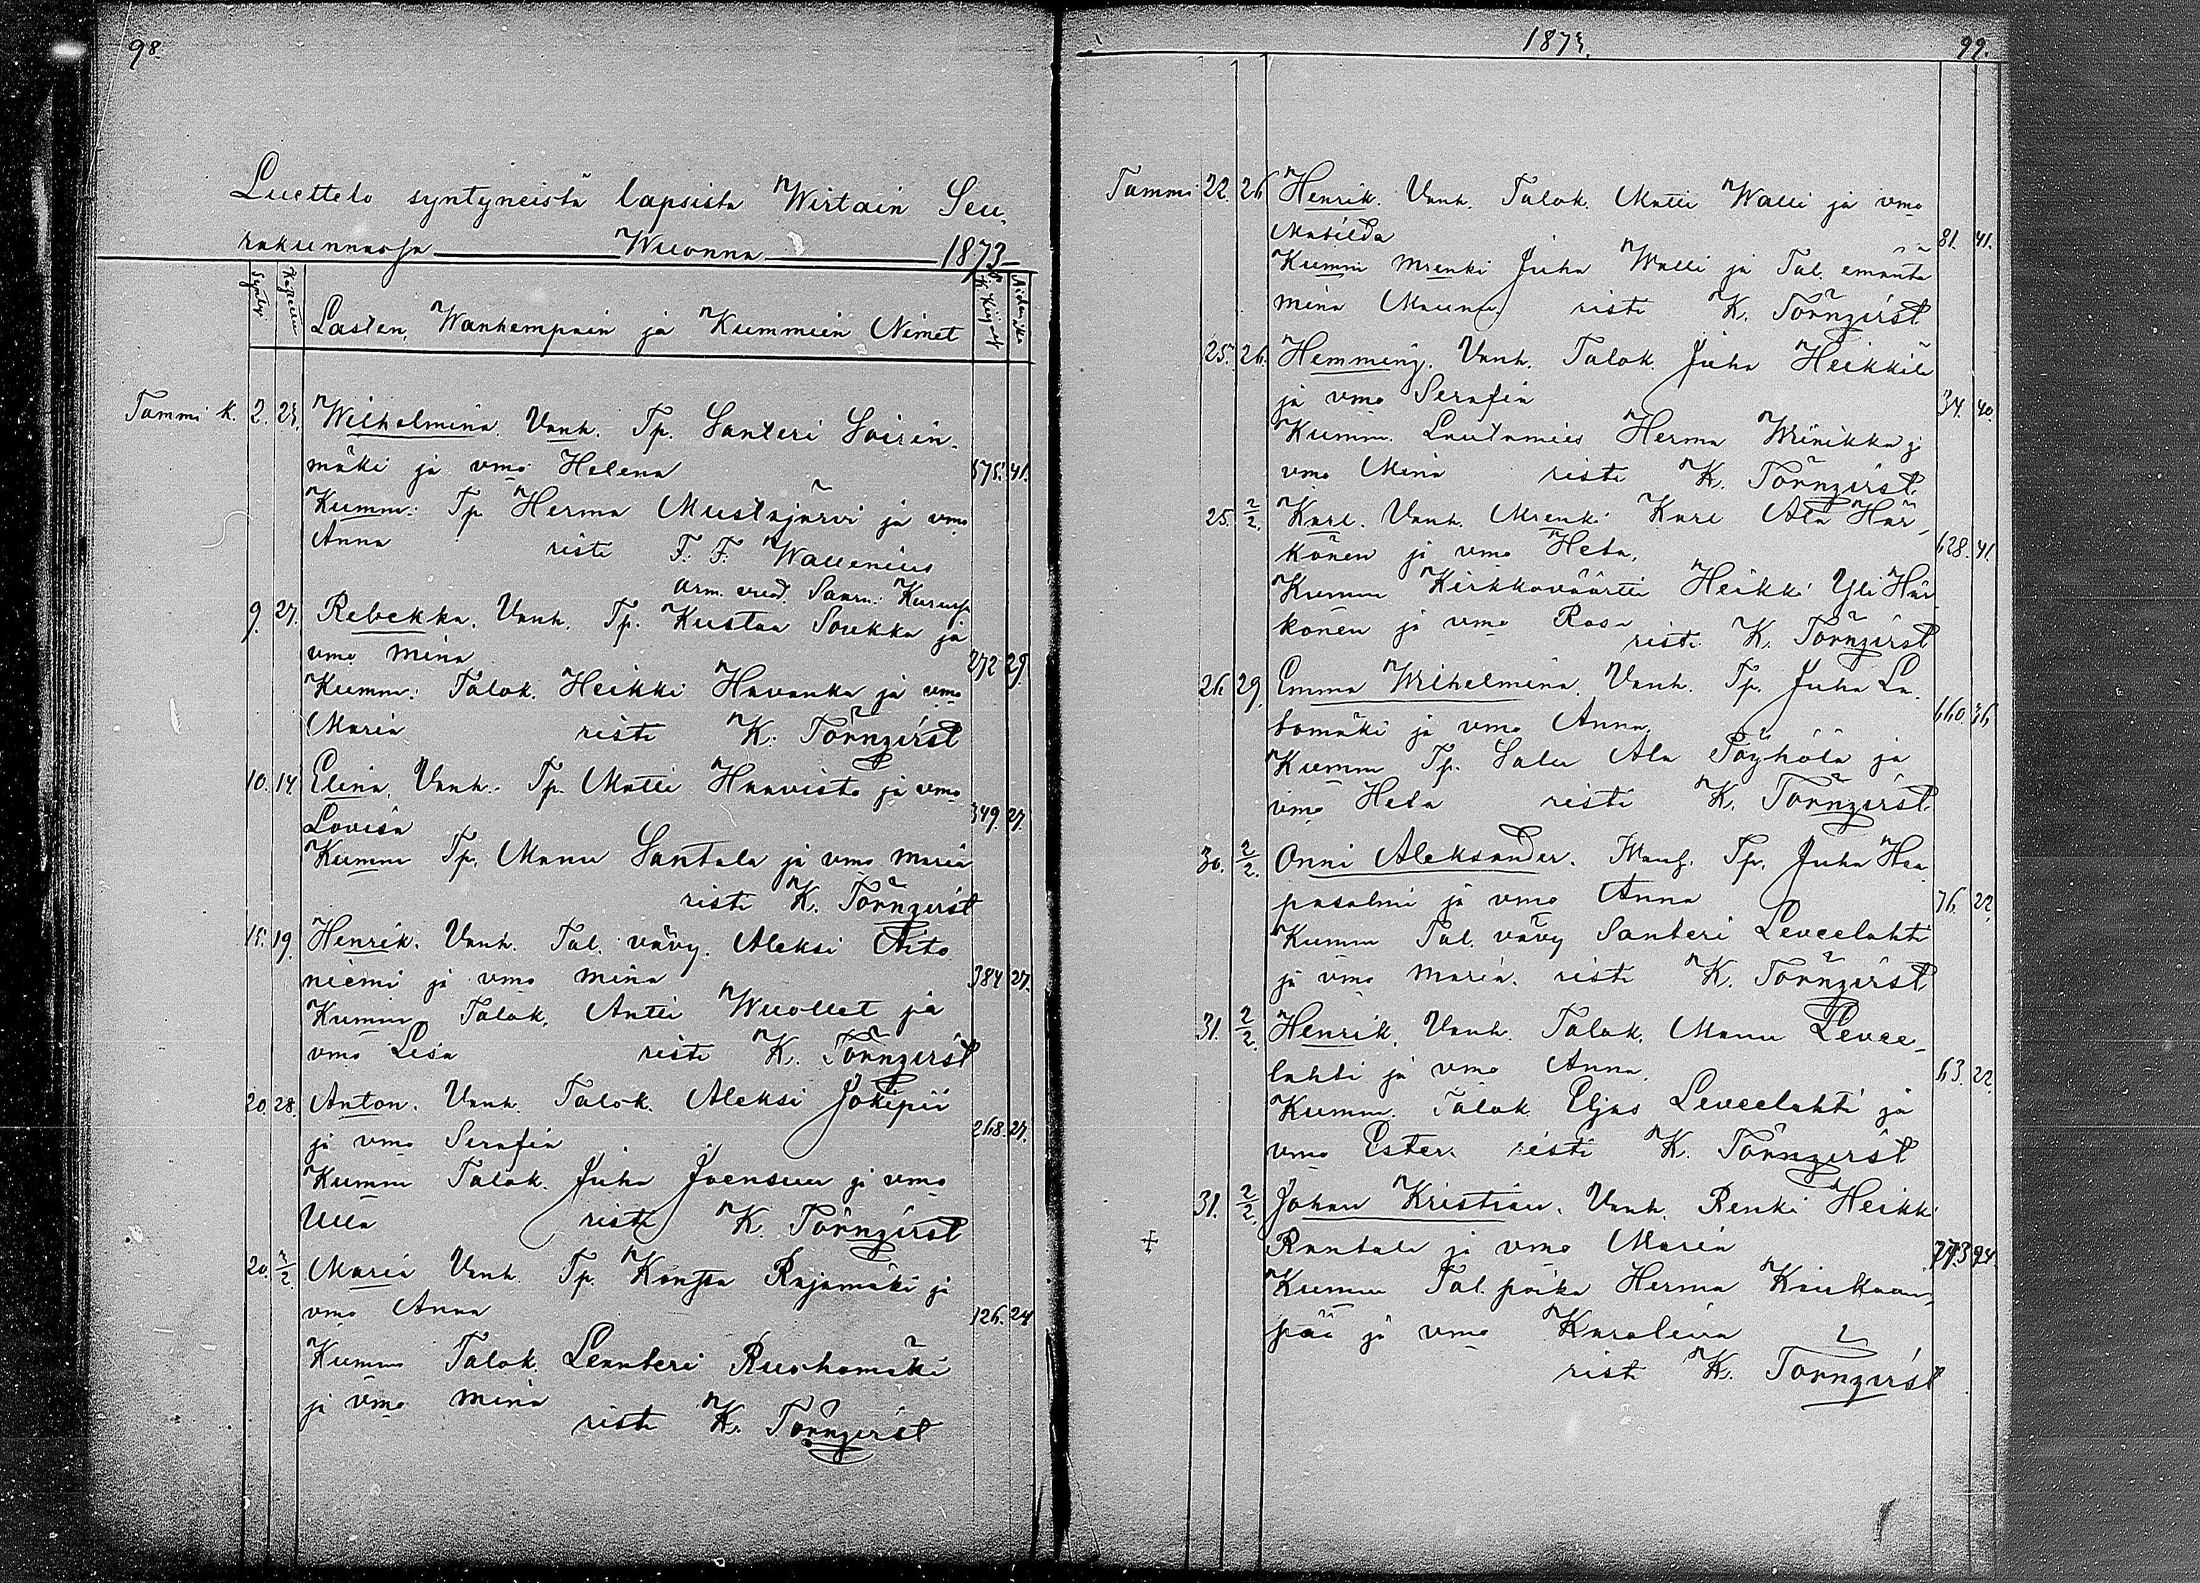 98.
Luettelo syntyneistä lapsista Wirtain Seu-
rakunnassa Wuonna 1873
Syntyi
Lasten, Wanhempain ja Kummien Nimet
Tammi k. 2. 23. Wilhelmina. Vanh. Tp. Santeri Soirin-
mäki ja vmo Helena 575. 41.
Kumm: Tp. Herma Mustajärvi ja vmo
Anna risti F. F. Wallenius
arm. vuod. Saarn:
9. 27. Rebekka. Vanh. Tp. Kustaa Soukka ja
vmo Mina 272 29.
Kumm: Talok. Heikki Havanka ja vmo
Maria risti K. Törnqvist
10. 14 Elina. Vanh. Tp. Matti Haavisto ja vmo
Lovisa 349. 27.
Kumm Tp. Manu Santala ja vmo Maria
risti K. Törnqvist
15. 19. Henrik. Vanh. Tal. vävy. Aleksi Aito
niemi ja vmo Mina 384 27.
Kumm Talok. Antti Wuollet ja
vmo Lisa risti K. Törnqvist
20. 28. Anton. Vanh. Talok. Aleksi Jokipii
ja vmo Serafia 268. 27.
Kumm Talok. Juha Joensuu ja vmo
Ulla risti K. Törnqvist
20. 2/2 Maria Vanh. Tp. Konsta Rajamäki ja
vmo Anna 126. 24
Kumm Talok. Leanteri Ruohomäki
ja vmo Mina
risti K. Törnqvist
1873. 99.
Tammi 22. 26 Henrik. Vanh. Talok. Matti Walli ja vmo
Matilda 81. 41.
Kumm Mrenki Juha Walli ja Tal. emäntä
Mina risti K. Törnqvist
25. 26. Hemming. Vanh. Talok. Juha Heikkilä
ja vmo Serafia 34. 40.
Kumm. Lautamies Herma Wrinikka j
vmo Mina risti K. Törnqvist.
25. 2/2. Karl. Vanh. Mrenki Karl Ala Här-
könen ja vmo Heta, 628. 41.
Kumm Kirkkoväärti Heikki Yli Här
könen ja vmo Rosa
risti K. Törnqvist
26. 29. Emma Wilhelmina. Vanh. Tp. Juha La-
tomäki ja vmo Anna. 660. 36
Kumm Tp. Salu Ala Pöyhölä ja
vmo Heta risti K. Törnqvist.
30. 2/2. Onni Aleksander. Tp. Juha Haa-
pasalmi ja vmo Anna 76. 22.
Kumm Tal. vävy Santeri Leveelahti
ja vmo Maria. risti K. Törnqvist
31. 2/2. Henrik. Vanh. Talok. Manu Levee-
lahti ja vmo Anna. 63. 22.
Kumm. Talok Eljas Leveelahti ja
vmo Ester. risti K. Törnqvist
31. 2/2. Johan Kristian. Vanh. Renki Heikki
+ Rantala ja vmo Maria
Kumm Tal. poika Herma Kiukaan-
pää ja vmo Karolina
risti K. Törnqvist